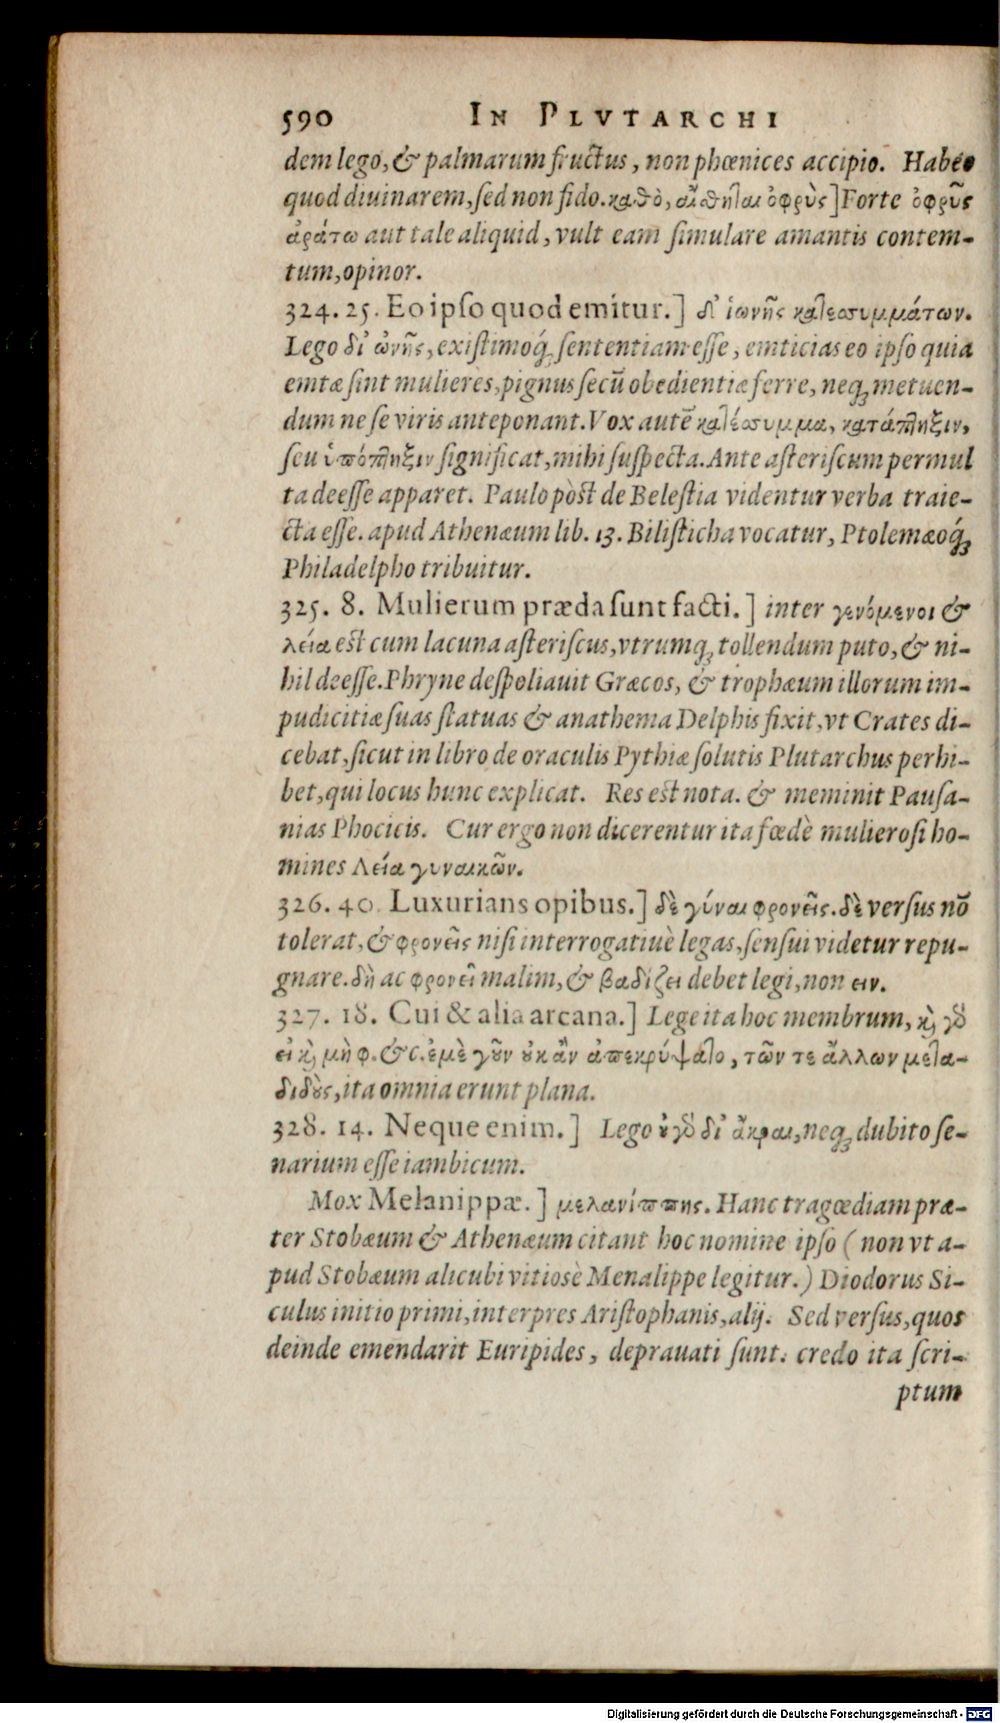 590 IN PLVTARCHI
dem lego, & palmarum fructus, non phœnices accipio. Habeo
quod diuinarem, sed non fido. καθὸ, αἰσθηται ὀφρὺς] Forte ὀφρῦς
ἀράτω aut tale aliquid, vult eam simulare amantis contem-
tum, opinor.
324. 25. Eo ipso quod emitur.] δἰ ἰωνῆς καταισυμμάτων.
Lego δἰ ὠνῆς, existimoq́; sententiam esse, emticias eo ipso quia
emtæ sint mulieres, pignus secū obedientiæ ferre, neq; metuen-
dum ne se viris anteponant. Vox autē κατάσυμμα, κατάπληξιν,
seu ὑπόπληξιν significat, mihi suspecta. Ante asteriscum permul
ta deesse apparet. Paulo pòst de Belestia videntur verba traie-
cta esse. apud Athenæum lib. 13. Bilisticha vocatur, Ptolemæoq́;
Philadelpho tribuitur.
325. 8. Mulierum præda sunt facti.] inter γενόμενοι &
λεία est cum lacuna asteriscus, vtrumq; tollendum puto, & ni-
hil deesse. Phryne despoliauit Græcos, & trophæum illorum im-
pudicitiæ suas statuas & anathema Delphis fixit, vt Crates di-
cebat, sicut in libro de oraculis Pythiæ solutis Plutarchus perhi-
bet, qui locus hunc explicat. Res est nota. & meminit Pausa-
nias Phocicis. Cur ergo non dicerentur ita fœdè mulierosi ho-
mines λεία γυναικῶν.
326. 40. Luxurians opibus.] δὲ γύναι φρονεῖς. δὲ versus nō
tolerat, & φρονεῖς nisi interrogatiuè legas, sensui videtur repu-
gnare. δὴ ac φρονεῖ malim, & βαδίζει debet legi, non ειν.
327. 18. Cui & alia arcana.] Lege ita hoc membrum, κ̀ γὸ
εἰ κ̀ μὴ φ. &c. ἐμὲ γοῦν οὐκ ἂν ἀπεκρύψατο, τῶν τε ἄλλων μετα-
διδοὺς, ita omnia erunt plana.
328. 14. Neque enim.] Lego οὐ γὸ δἰ ἄκραι, neq; dubito se-
narium esse iambicum.
Mox Melanippæ.] μελανίππης. Hanc tragœdiam præ-
ter Stobæum & Athenæum citant hoc nomine ipso (non vt a-
pud Stobæum alicubi vitiosè Menalippe legitur.) Diodorus Si-
culus initio primi, interpres Aristophanis, alij. Sed versus, quos
deinde emendarit Euripides, deprauati sunt. credo ita scri-
ptum
Digitalisierung gefördert durch die Deutsche Forschungsgemeinschaft - DFG